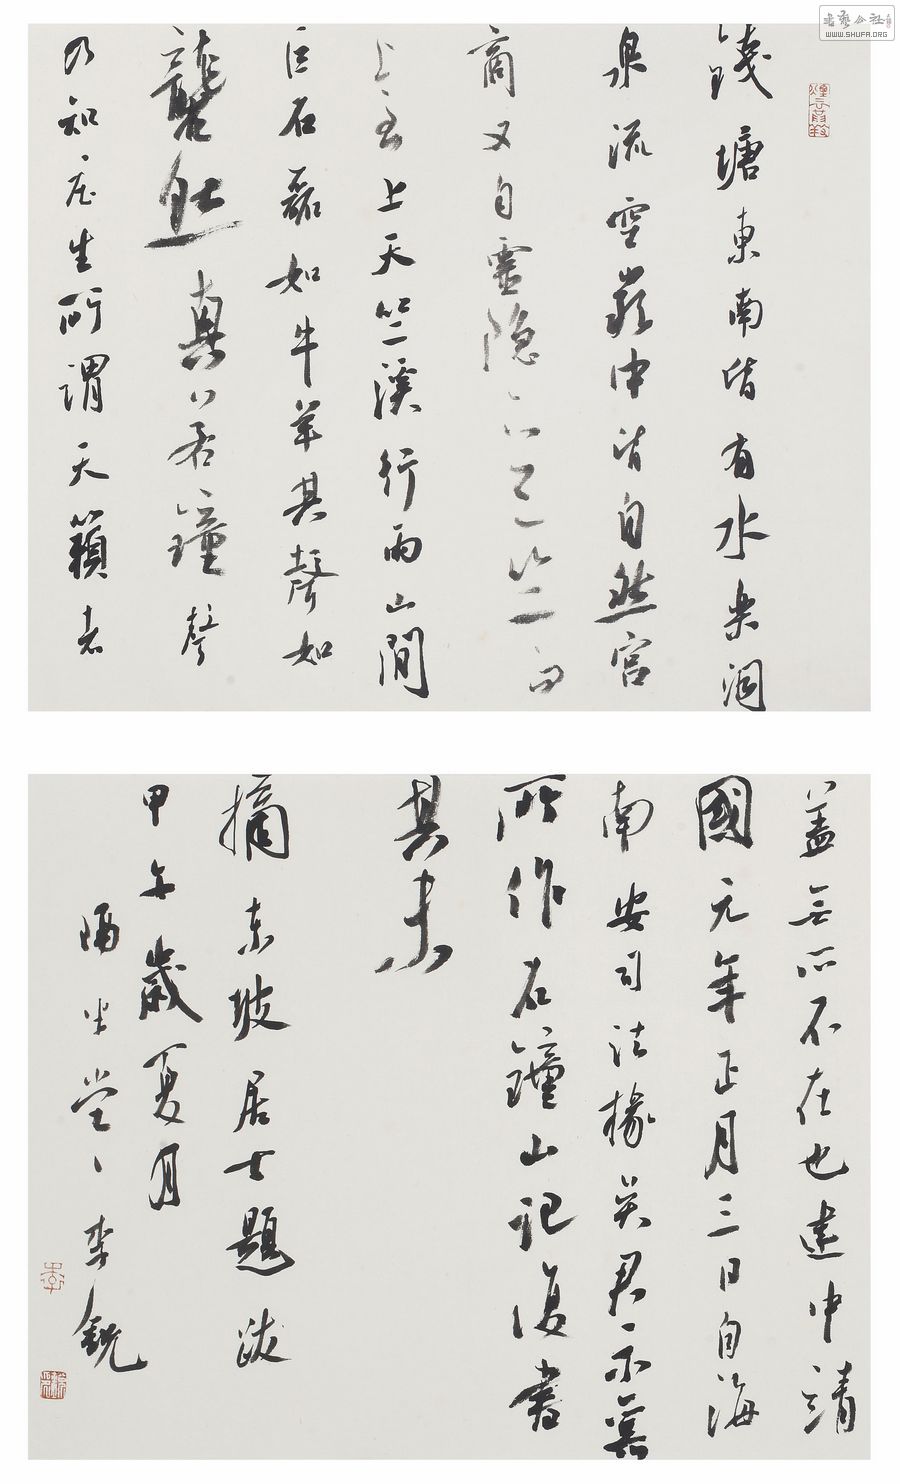 書藝公社
WWW.SHUFA.ORG
錢塘東南皆有水樂洞
泉流空巖中皆自然宮
商又自靈隱下天竺而
上至上天竺溪行兩山間
巨石磊如牛羊其聲如
礱然真若鐘聲
乃知莊生所謂天籟者
蓋無所不在也建中靖
國元年正月三日自海
南安司法掾吳君示舊
所作石鐘山記復書
其末
摘東坡居士題跋
甲午歲夏月
隔堂李銳
李